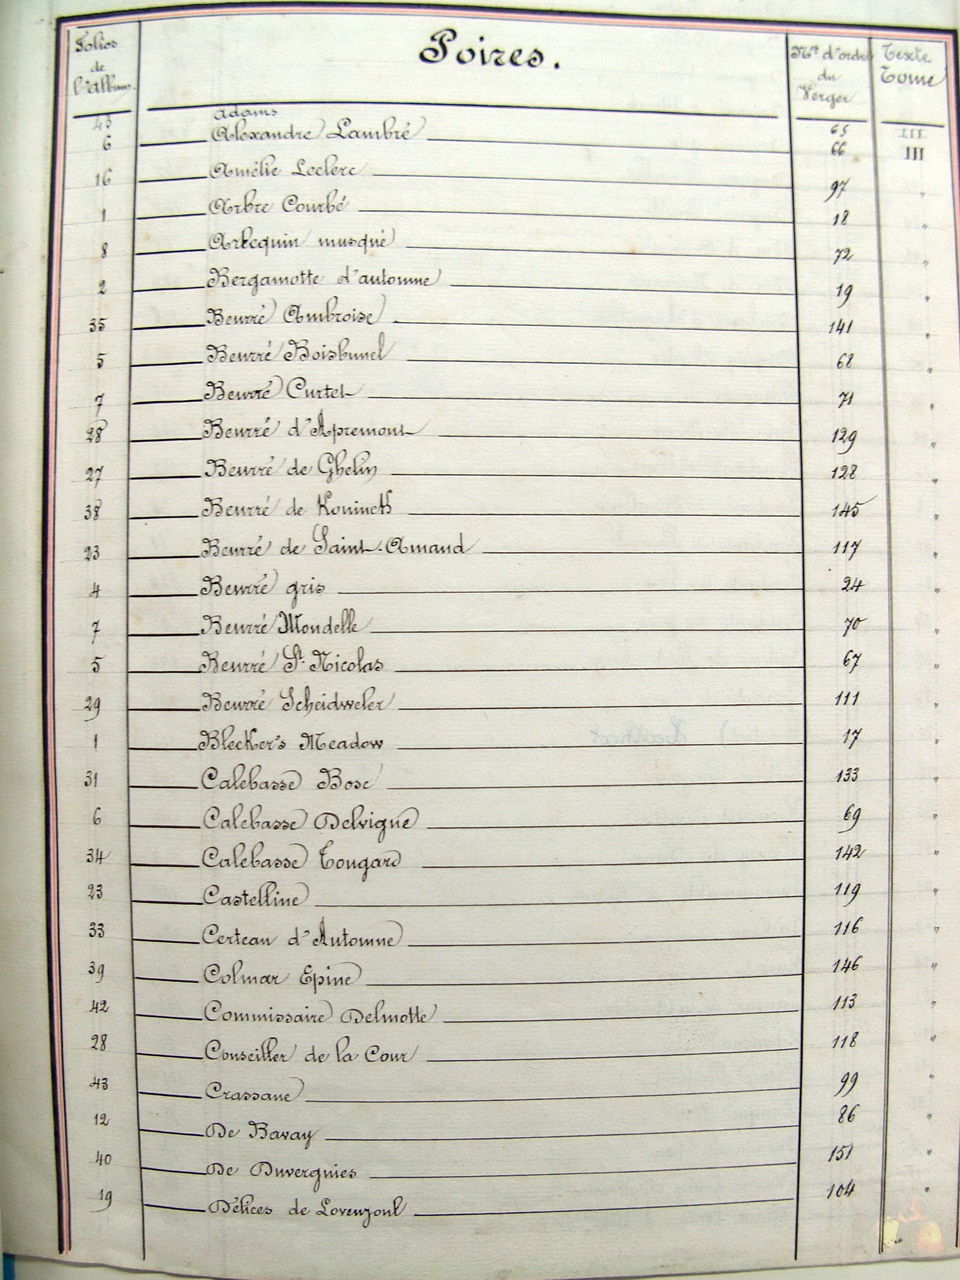 Folios de l'album. Poires. Nos d'ordre du Verger Texte Tome
43 Adams 65 III
6 Alexandre Lambré 66 III
16 Amélie Leclerc 97 "
1 Arbre Courbé 18 "
8 Arlequin musqué 72 "
2 Bergamotte d'automne 19 "
35 Beurré Ambroise 141 "
5 Beurré Boisbunel 68 "
7 Beurré Curtet 71 "
28 Beurré d'Apremont 129 "
27 Beurré de Ghelin 128 "
38 Beurré de Koninck 145 "
23 Beurré de Saint-Amand 117 "
4 Beurré gris 24 "
7 Beurré Mondelle 70 "
5 Beurré St Nicolas 67 "
29 Beurré Scheidweler 111 "
1 Blecker's Meadow 17 "
31 Calebasse Bosc 133 "
6 Calebasse Delvigne 69 "
34 Calebasse Tougard 142 "
23 Castelline 119 "
33 Certeau d'Automne 116 "
39 Colmar Epine 146 "
42 Commissaire Delmotte 113 "
28 Conseiller de la Cour 118 "
43 Crassane 99 "
12 De Bavay 86 "
40 De Duvergnies 151 "
19 Délices de Lovenjoul 104 "